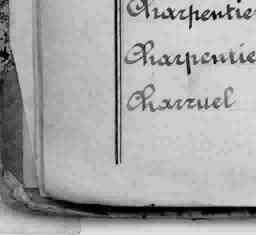 Charpentie
Charpentie
Charruel